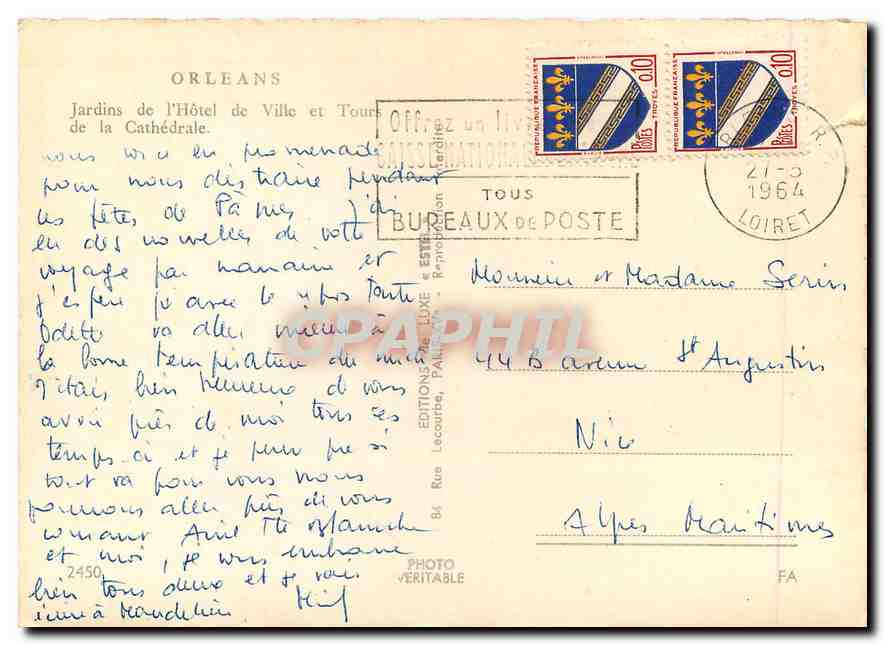 ORLEANS
Jardins de l'Hôtel de Ville et Tours
de la Cathédrale.
nous voici en promenade
pour nous distraire pendant
les fêtes de Pâques J'ai
eu des nouvelles de votre
voyage par maman et
j'espère qu'avec le repos tante
Odette va aller mieux à
la bonne température du midi
J'étais bien heureuse de vous
avoir près de moi tous ces
temps ci et je pense que si
tout va pour vous nous
pourrons aller près de vous
Aimé
et moi, je vous embrasse
bien tous deux et je vais
écrire à Mandelieu.
2450
PHOTO
VERITABLE
FA
EDITIONS de LUXE « ESTEL »
84 Rue Lecourbe, PARIS-XVe - Reproduction Interdite
Offrez un liv
CAISSE NATIONAL
TOUS
BUREAUX DE POSTE
REPUBLIQUE FRANCAISE
0.10
POSTES
TROYES
REPUBLIQUE FRANCAISE
0.10
POSTES
TROYES
1964
LOIRET
Monsieur et Madame Serin
44 B avenue St Augustin
Nice
Alpes Maritimes
CPAPHIL